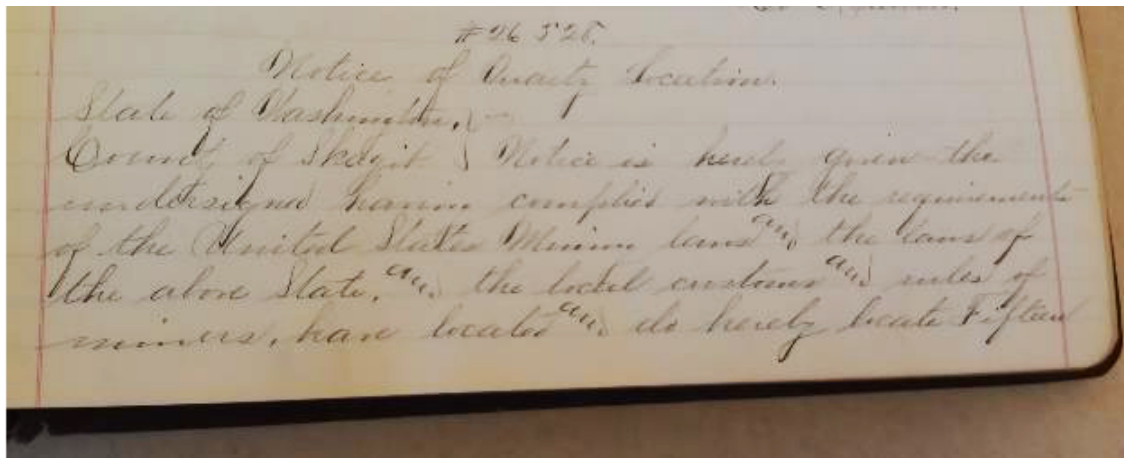 #26528.
Notice of Quartz Location.
State of Washington,
County of Skagit } Notice is hereby given the
undersigned having complied with the requirements
of the United States Mining laws and the laws of
the above State, and the local customs and rules of
miners, have located and do hereby locate Fifteen